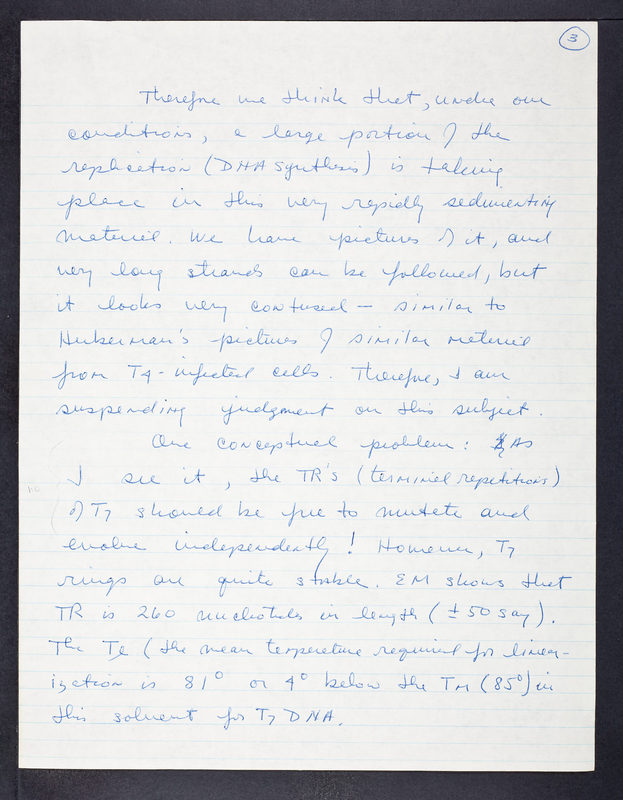 3
Therefore we think that, under our
conditions, a large portion of the
replication (DNA synthesis) is taking
place in this very rapidly sedimenting
material. We have pictures of it, and
very long strands can be followed, but
it looks very confused — similar to
Huberman's pictures of similar material
from T4-infected cells. Therefore, I am
suspending judgment on this subject.
One conceptual problem: As
I see it, the TR's (terminal repetitions)
of T7 should be free to mutate and
evolve independently! However, T7
rings are quite stable. EM shows that
TR is 260 nucleotides in length (±50 say).
The Te (the mean temperature required for linear-
ization is 81° or 4° below the TM (85°) in
this solvent for T7 DNA.